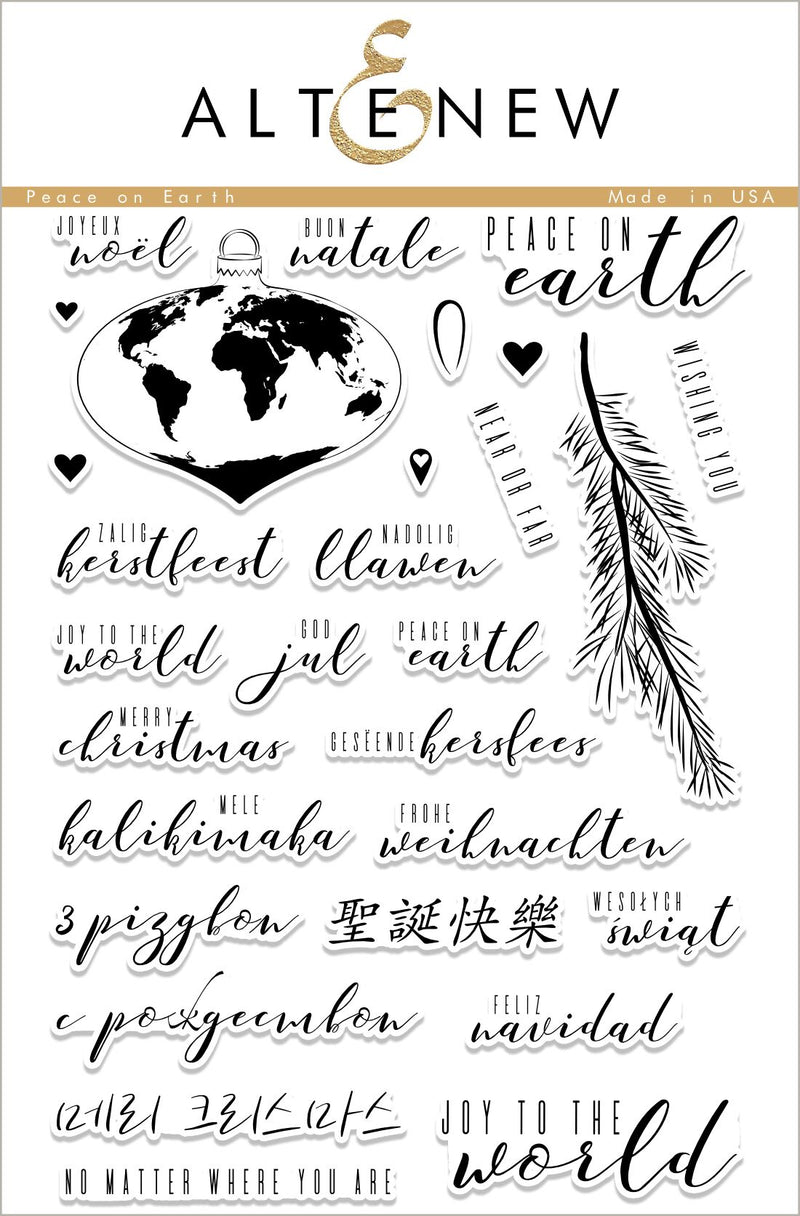 ALTENEW
Peace on Earth
Made in USA
JOYEUX
noël
BUON
natale
PEACE ON
earth
WISHING YOU
NEAR OR FAR
ZALIG
kerstfeest
NADOLIG
llawen
JOY TO THE
world
GOD
jul
PEACE ON
earth
MERRY
christmas
GESËENDE kersfees
MELE
kalikimaka
FROHE
weihnachten
з різдвом
聖誕快樂
WESOŁYCH
świąt
с рождеством
FELIZ
navidad
메리 크리스마스
JOY TO THE
world
NO MATTER WHERE YOU ARE